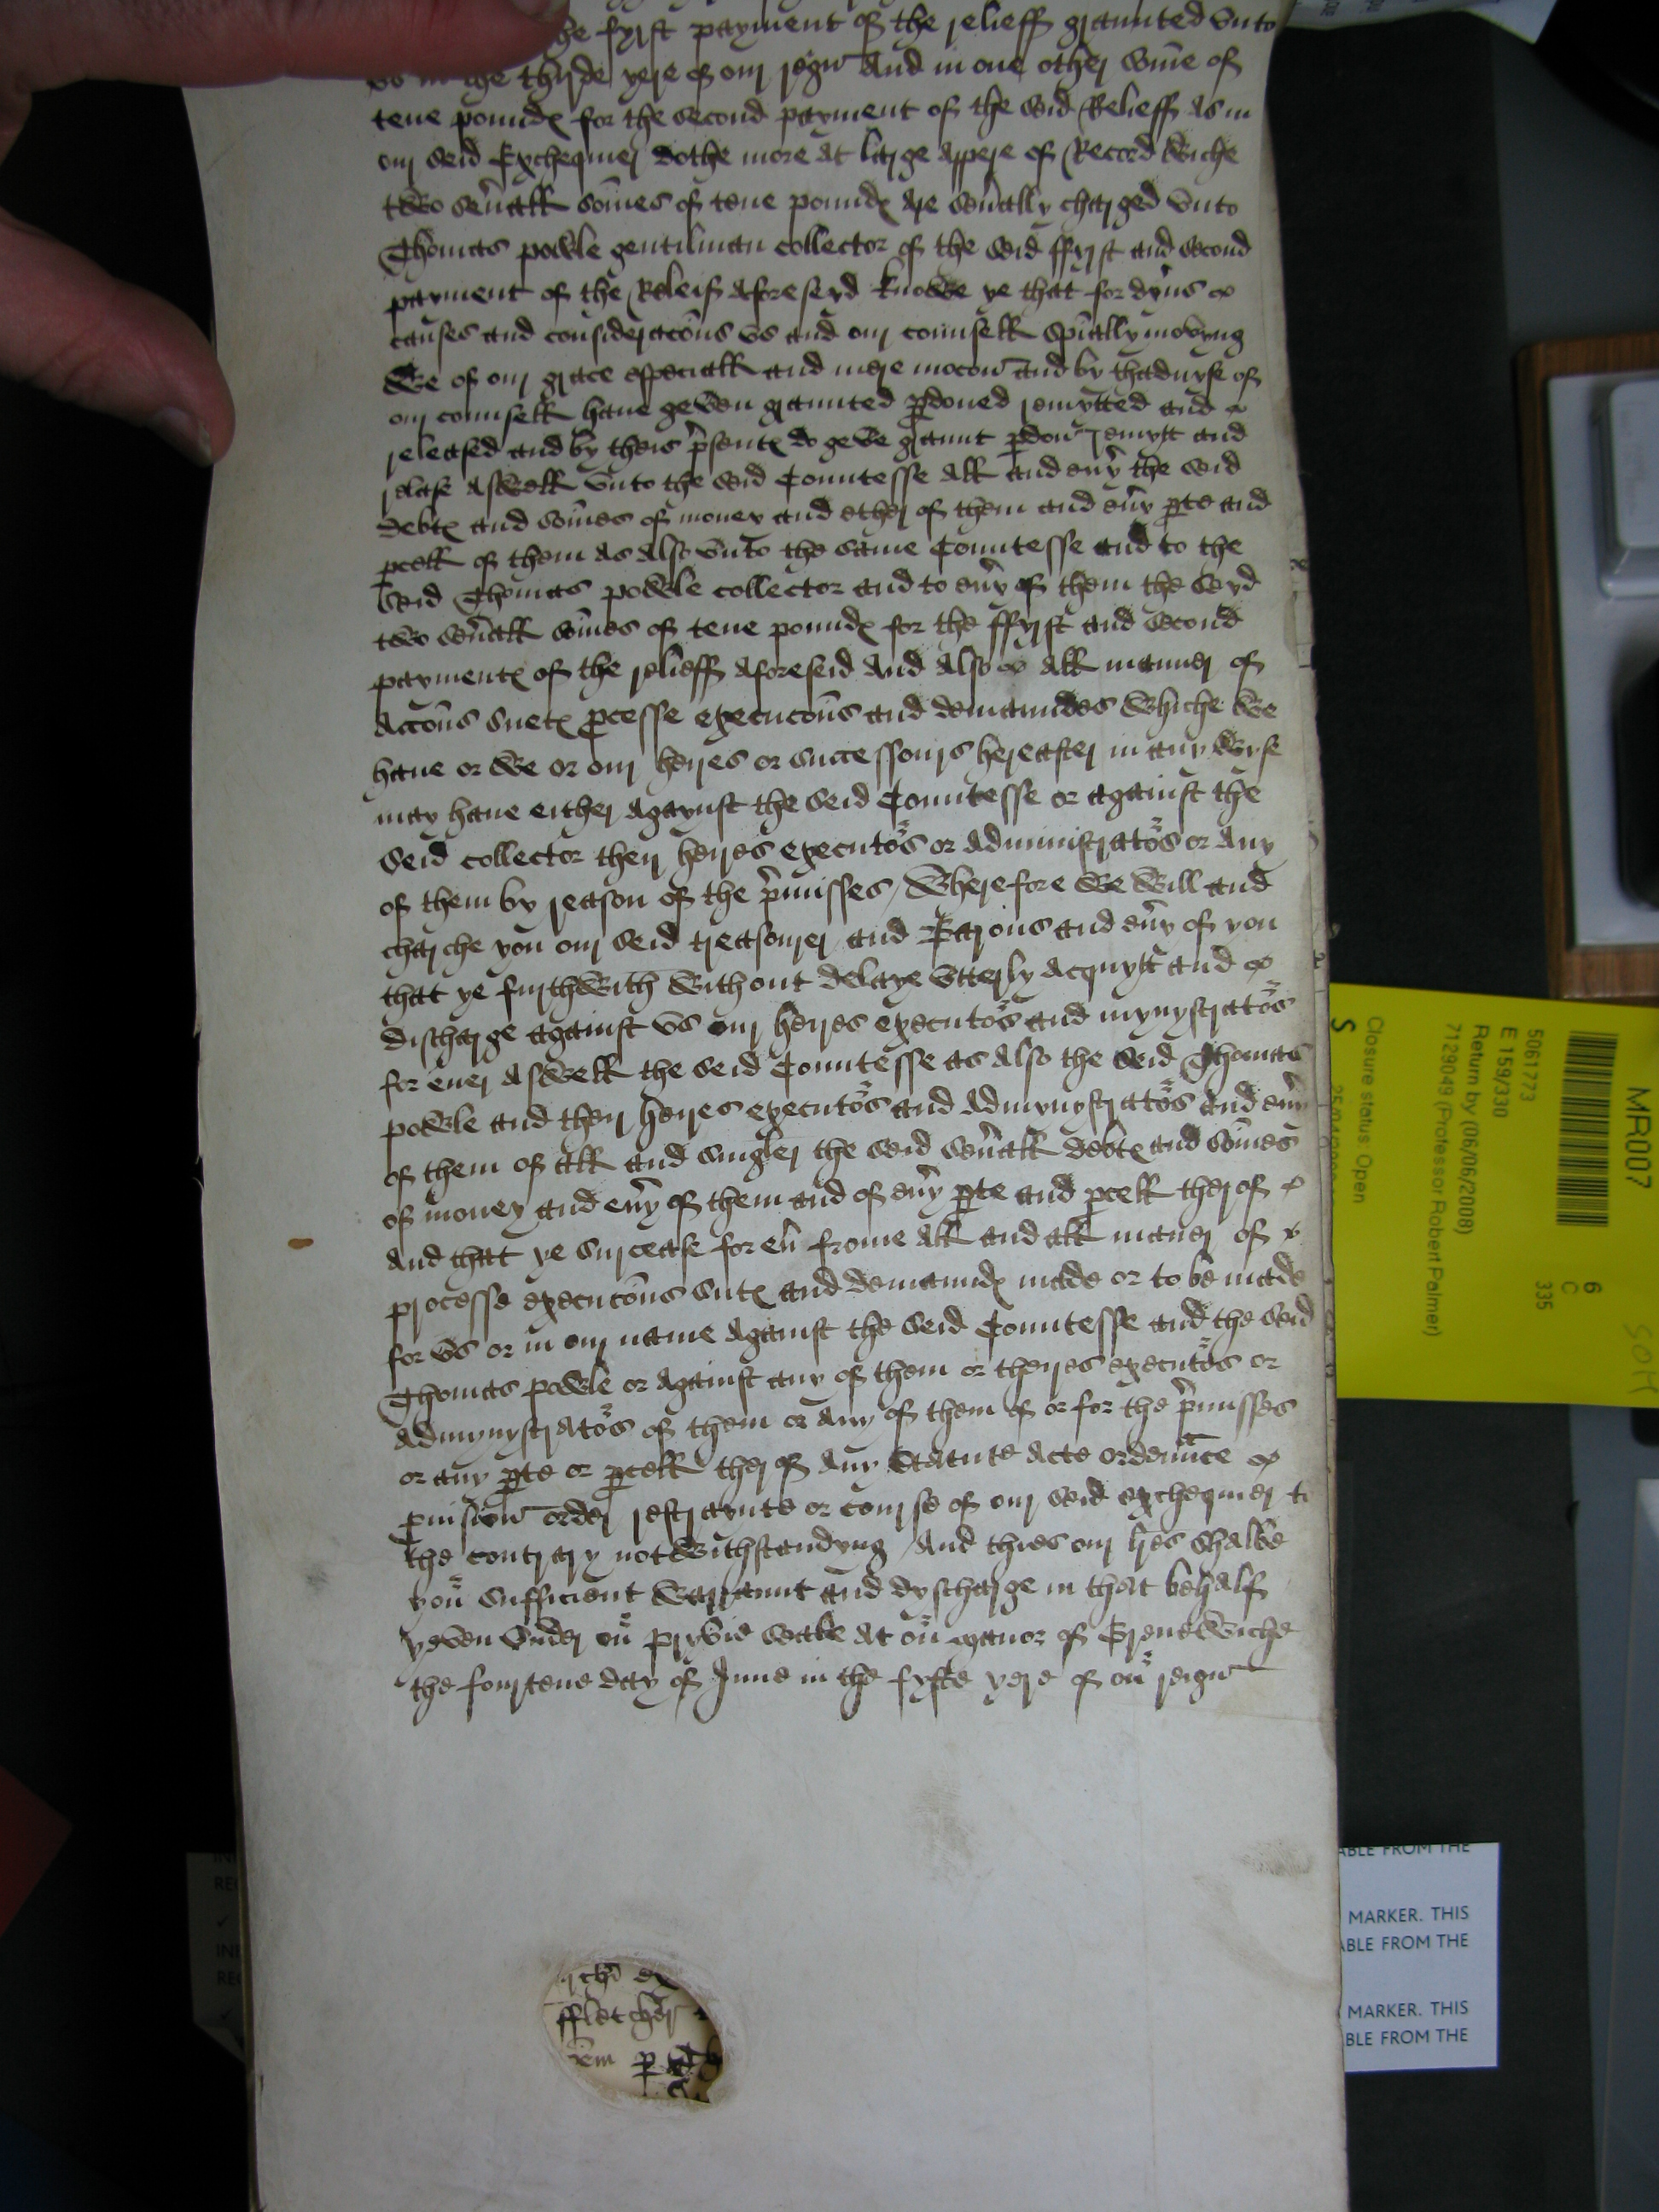 the fyrst payment of the relieff graunted vnto
vs in the thyrde yere of our reign And in one other som̃e of
tene poundes for the second payment of the seid Relieff As in
our seid Exchequier dothe more at large appere of Record Wiche
two seu'all som̃es of tene poundes are seu'ally charged vnto
Thomas powle gentilman collector of the seid ffyrst and second
payment of the Releif aforeseyd knowe ye that for dyu's
causes and consideraco͂ns vs and our counsell sp͂ially movyng
We of our grace especiall and mere mocon and by thaduyse of
our counsell haue geven graunted p'doned remytted and
released and by theis p'sentes do geve graunt p'don remytt and
relase aswell vnto the seid Countesse all and eu'y the seid
debtes and som̃es of money and ether of them and eu'y p'te and
p'cell of them as also vnto the same Countesse and to the
seid Thomas powle collector and to eu'y of them the seyd
two seu'all som̃es of tene poundes for the ffyrst and second
paymentes of the relieff aforeseid And also all manner of
Acco͂ns suetes p'cesse execuco͂ns and demaundes Whiche We
haue or We or our heyres or successours hereafter in any wyse
may haue either agaynst the seid Countesse or against the
seid collector their heyres executo^rs or administrato^rs or any
of them by reason of the p'misses / Wherefore We Will and
charche you our seid treasourer and Barons and eu'y of you
that ye furthwith without delaye vtterly acquytt and
discharge against vs our heyres executo^rs and mynystrato^rs
for euer aswell the seid Countesse as also the seid Thomas
powle and their heyres executo^rs and admynystrato^rs and eu'y
of them of all and singler the seid seu'all debtes and som̃es
of money and eu'y of them and of eu'y p'te and p'cell therof
And that ye surcease for eu' frome all and all maner of
processe execuco͂ns sutes and demaundes made or to be made
for vs or in our name against the seid Countesse and the seid
Thomas powle or against any of them or theyres executo^rs or
admynystrato^rs of them or any of them of or for the p'misses
or any p'te or p'cell therof Any Statute Acte ordennce
p'uision order restraynte or course of our seid exchequier to
the contrary notwithstandyng / And thies our l'res shalbe
yo^r sufficient warraunt and dyscharge in that behalf
yeven vnder o^r pryvie seale at o^r manor of Grenewiche
the fourtene day of June in the fyfte yere of o^r reign
ffletcher
MR007
5061773
E 159/330
Return by (06/06/2008)
7129049 (Professor Robert Palmer)
Closure status: Open
S
6
C
335
ABLE FROM THE
MARKER. THIS
ABLE FROM THE
MARKER. THIS
BLE FROM THE